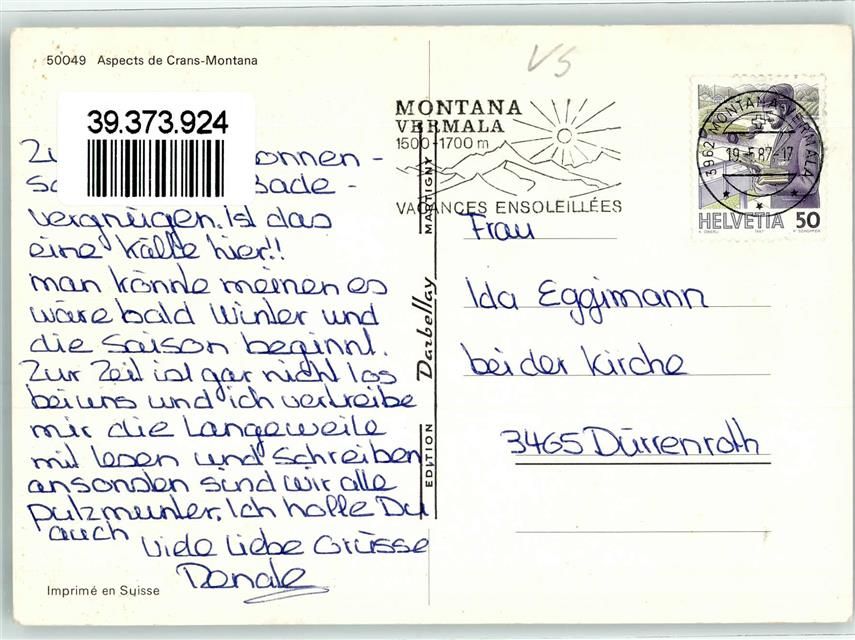 50049 Aspects de Crans-Montana
VS
39.373.924
MONTANA
VERMALA
1500-1700 m
VACANCES ENSOLEILLÉES
3962 MONTANA-VERMALA
19.-5.87-17
HELVETIA 50
onnen-
bade-
vergnügen. Ist das
eine Kälte hier!!
man könnte meinen es
wäre bald Winter und
die Saison beginnt.
Zur Zeit ist gar nicht los
bei uns und ich vertreibe
mir die Langeweile
mit lesen und schreiben
ansonsten sind wir alle
putzmunter. Ich hoffe Du
auch
Viele liebe Grüsse
EDITION Darbellay MARTIGNY
Frau
Ida Eggimann
bei der Kirche
3465 Dürrenroth
Imprimé en Suisse